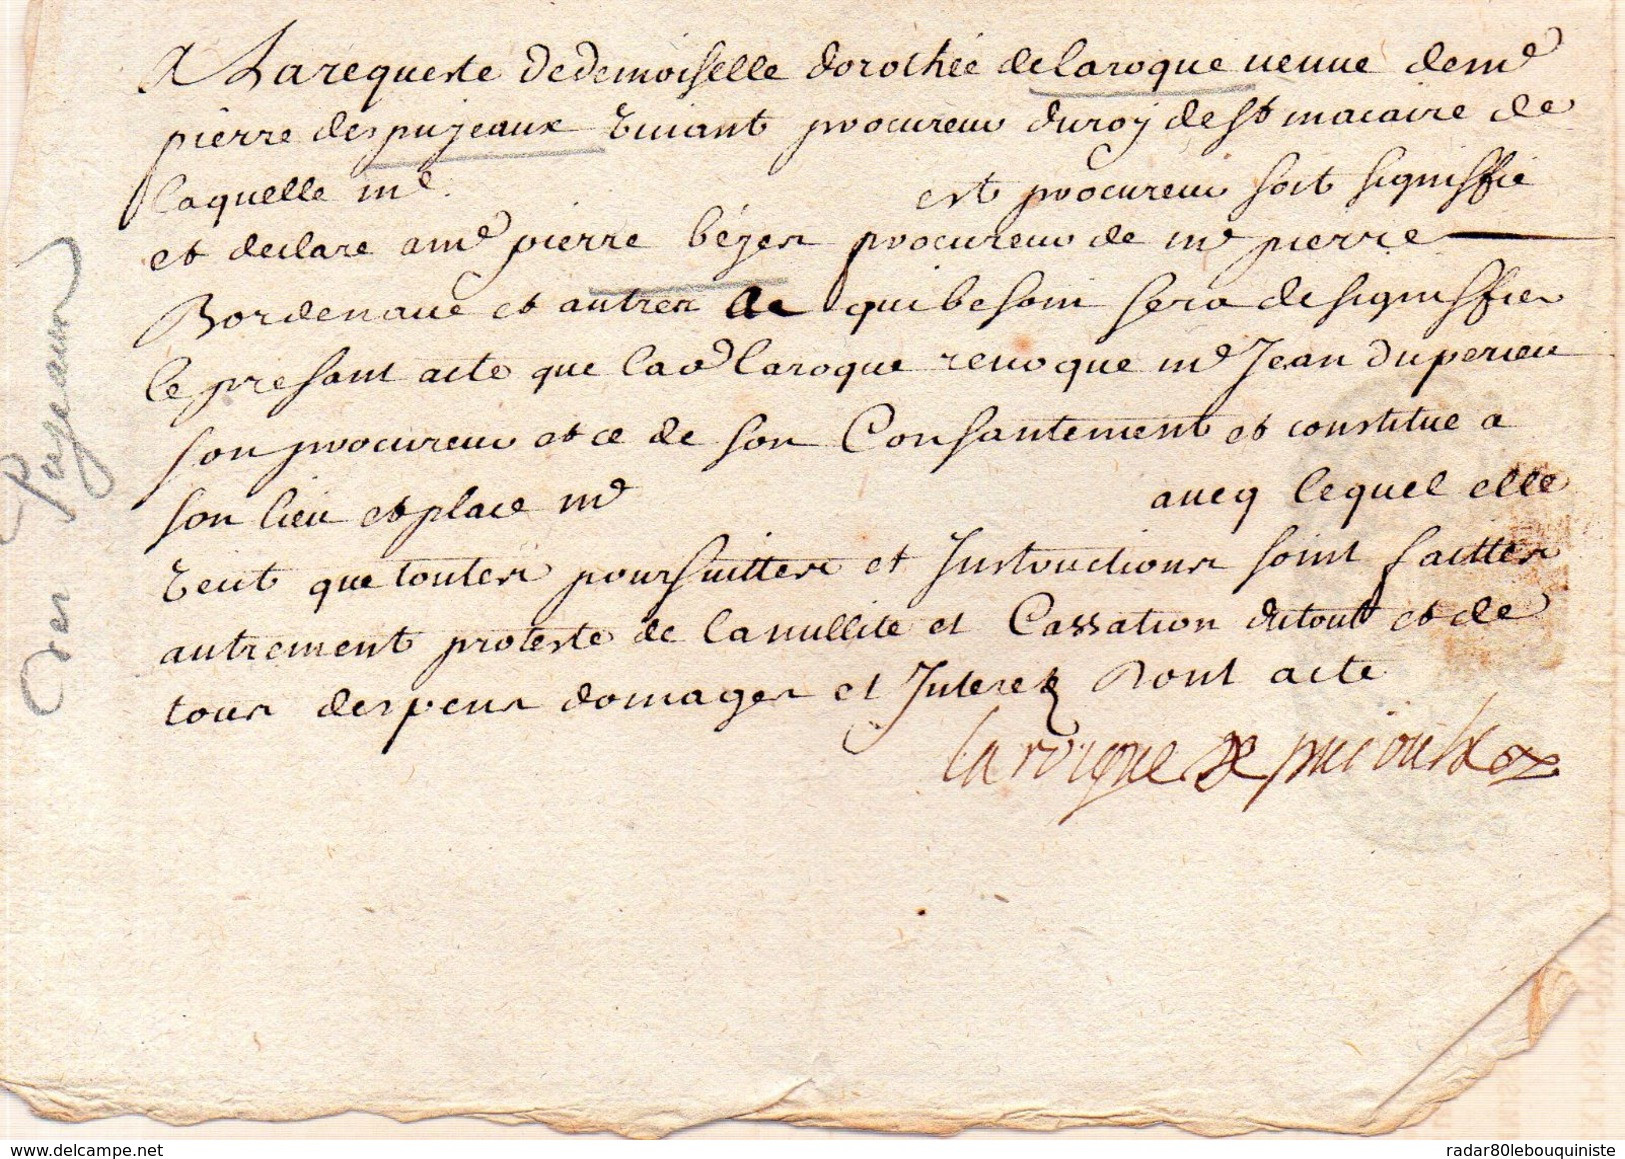 A La requeste de demoiselle dorothée de laroque veuve de me
pierre des pujeaux vivant procureur du roy de st macaire de
laquelle me est procureur soit signiffié
et declare a me pierre bézes procureur de me pierre
Bordenave et autres de qui besoin sera de signiffier
le presant acte que lad laroque revoque me Jean duperieu
son procureur et ce de son Consantement et constitue a
son lieu et place me avecq lequel elle
veut que toutes poursuittes et Instructions soint faittes
autrement proteste de la nullité et Cassation du tout et de
tous despens domages et Interez Dont acte
laroique de puiouls
des Pujeaux
radar80lebouquiniste